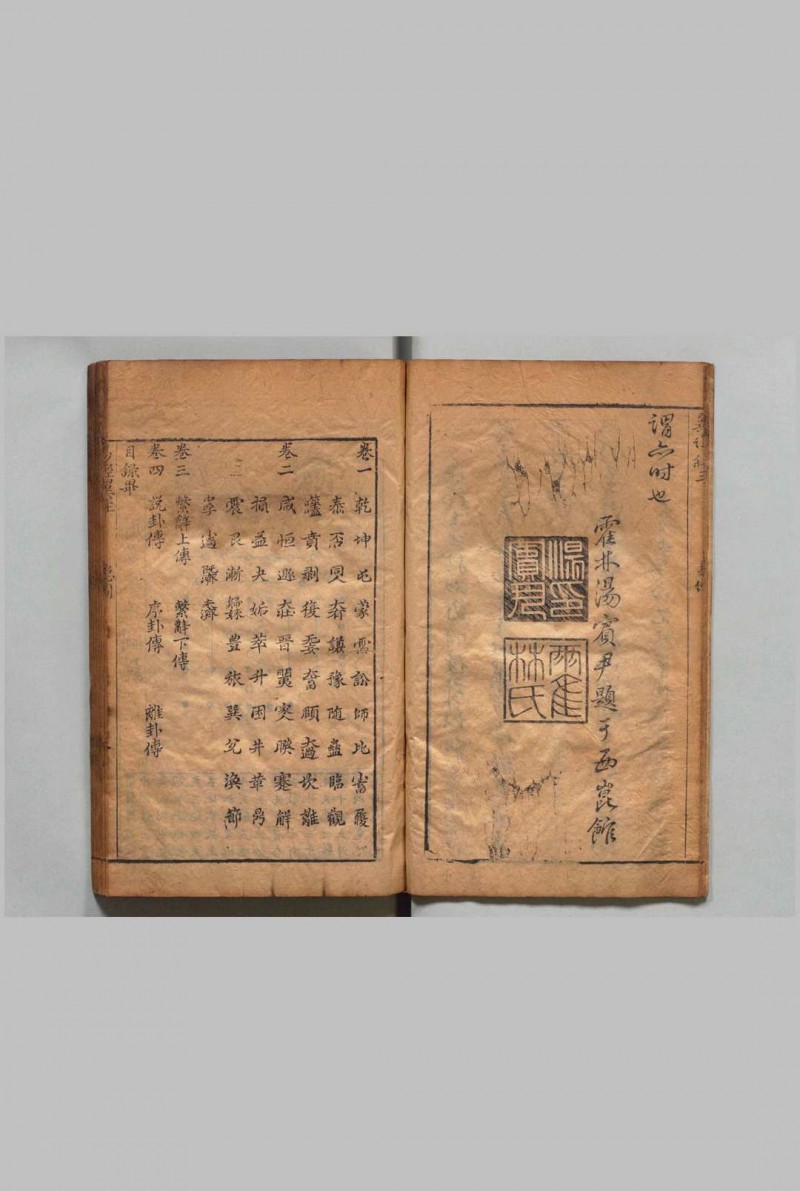 謂六时也
霍林湯賓尹題于西崑館
湯印賓尹
霍林氏
卷一 乾坤屯蒙需訟師比畜履
泰否同大謙豫隨蠱臨觀
噬賁剝復妄畜頤過坎離
卷二 咸恒遯壯晉明家睽蹇解
損益夬姤萃升困井革鼎
震艮漸歸豐旅巽兌渙節
孚過濟濟
卷三 繫辭上傳 繫辭下傳
卷四 説卦傳 序卦傳 雜卦傳
目錄畢